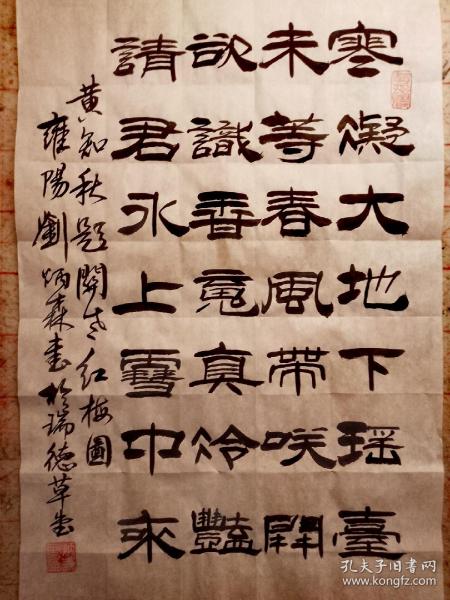 寒凝大地下瑶臺
未等春風帶咲開
欲識香竟真冷豔
請君氷上雪中來
黄知秋題關老红梅圖
雍陽劉炳森書於瑞德草堂
孔夫子旧书网
www.kongfz.com